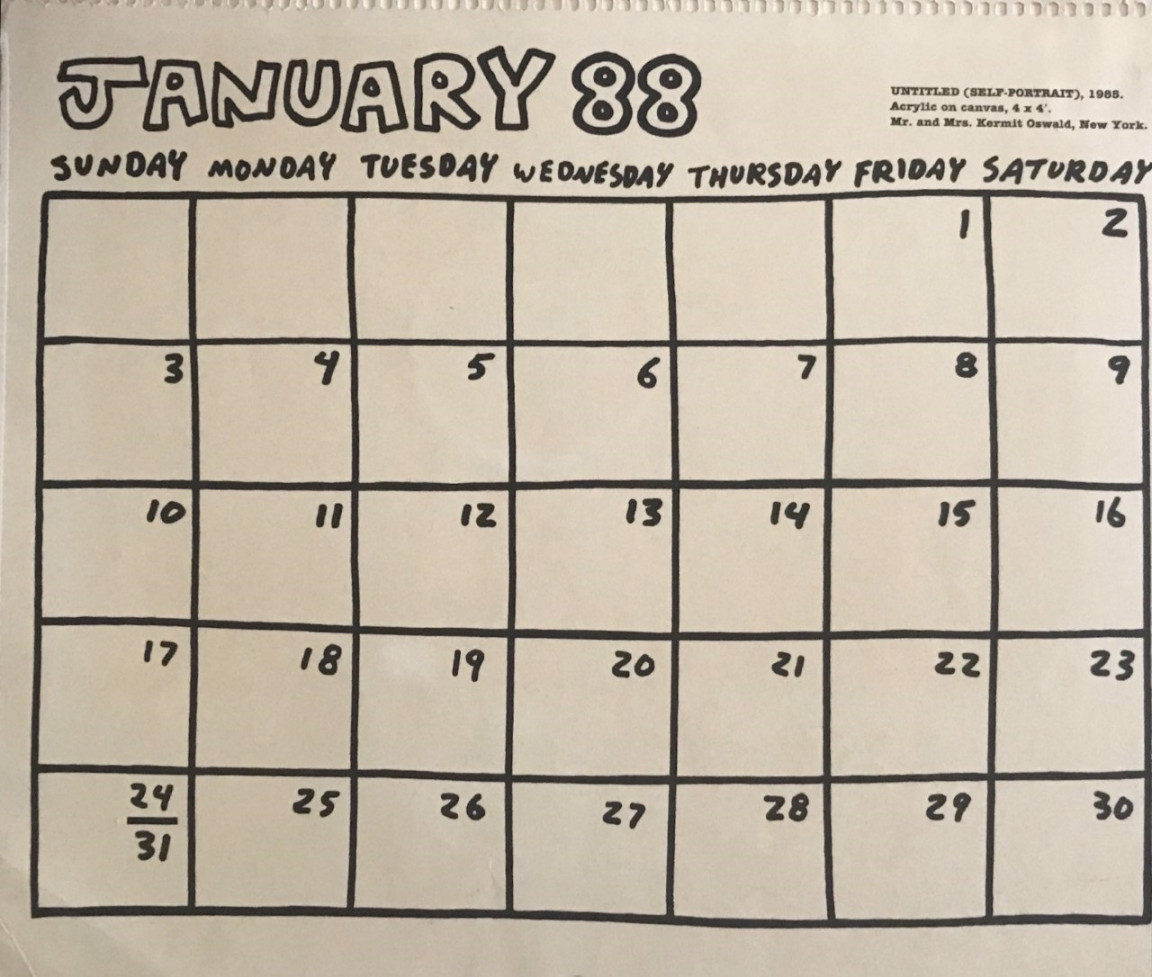 JANUARY 88
UNTITLED (SELF-PORTRAIT), 1985.
Acrylic on canvas, 4 x 4'.
Mr. and Mrs. Kermit Oswald, New York.
SUNDAY MONDAY TUESDAY WEDNESDAY THURSDAY FRIDAY SATURDAY
1 2
3 4 5 6 7 8 9
10 11 12 13 14 15 16
17 18 19 20 21 22 23
24 25 26 27 28 29 30
31